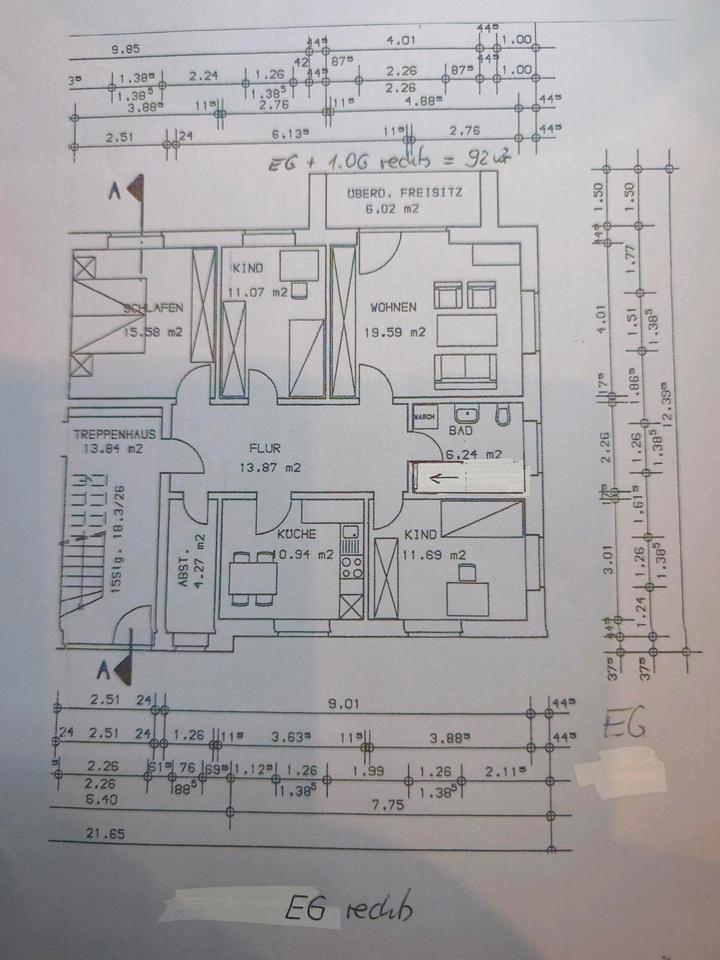 9.85 44⁵ 4.01 44⁵ 1.00
42 87⁵
1.38⁵ 2.24 1.26 44⁵ 2.26 87⁵ 44⁵ 1.00
1.38⁵ 1.38⁵ 2.26
3.88⁵ 11⁵ 2.76 11⁵ 4.88⁵ 44⁵
2.51 24 6.13⁵ 11⁵ 2.76 44⁵
EG + 1.OG rechts = 92 m²
A
ÜBERD. FREISITZ
6.02 m2
KIND
11.07 m2
SCHLAFEN
15.58 m2
WOHNEN
19.59 m2
WASCH
BAD
6.24 m2
TREPPENHAUS
13.84 m2
FLUR
13.87 m2
15Stg. 18.3/26
ABST.
4.27 m2
KÜCHE
10.94 m2
KIND
11.69 m2
A
1.50 44⁵ 4.01 17⁵ 2.26 17⁵ 3.01 44⁵ 37⁵
1.50 1.77 1.51 1.86⁵ 1.26 1.61⁵ 1.26 1.24 37⁵
1.38⁵ 1.38⁵ 1.38⁵
12.39⁵
2.51 24 9.01 44⁵
24 2.51 24 1.26 11⁵ 3.63⁵ 11⁵ 3.88⁵ 44⁵
2.26 61⁵ 76 69⁵ 1.12⁵ 1.26 1.99 1.26 2.11⁵
2.26 88⁵ 1.38⁵ 1.38⁵
6.40 7.75
21.65
EG
EG rechts